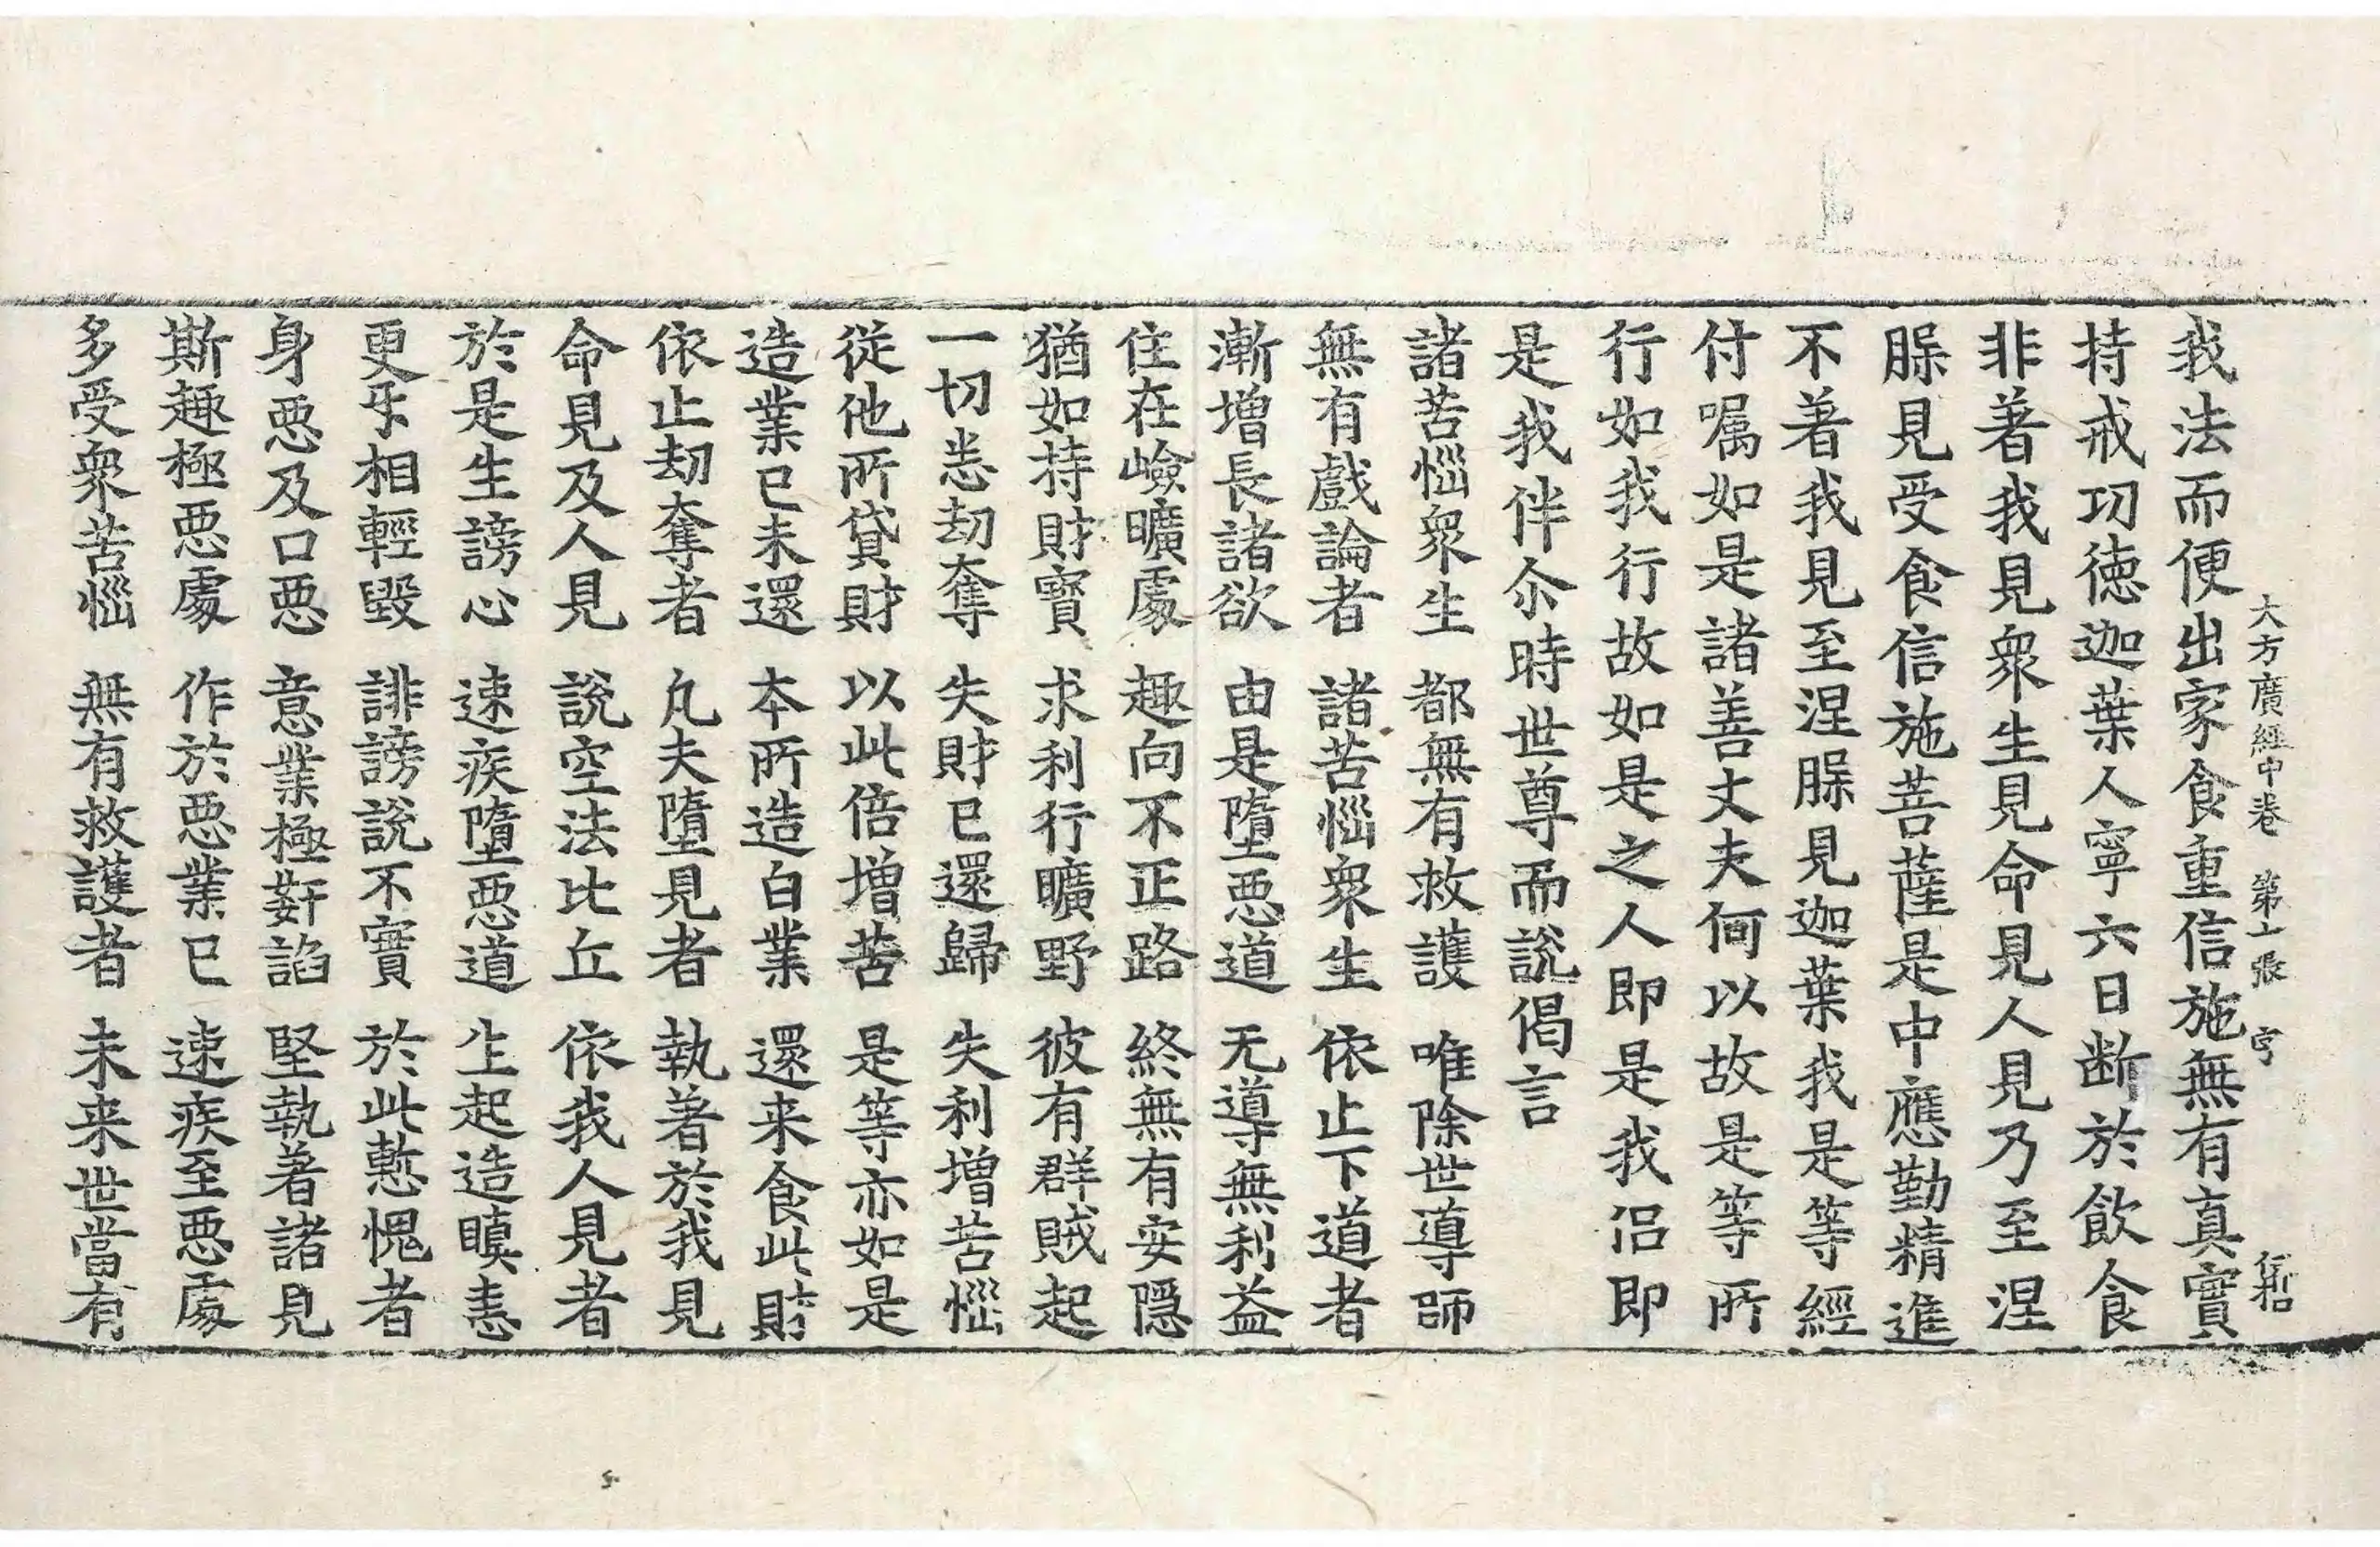 大方廣經中卷 第十張 官
我法而便出家食重信施無有真實
持戒功徳迦葉人寧六日断於飲食
非著我見衆生見命見人見乃至涅
腂見受食信施菩薩是中應勤精進
不著我見至涅腂見迦葉我是等經
付嘱如是諸善丈夫何以故是等所
行如我行故如是之人即是我侣即
是我伴尒時世尊而說偈言
諸苦惱衆生 都無有救護 唯除世導師
無有戲論者 諸苦惱衆生 依止下道者
漸增長諸欲 由是墮惡道 无導無利益
住在嶮曠處 趣向不正路 終無有安隱
猶如持財寶 求利行曠野 彼有群賊起
一切悉劫奪 失財已還歸 失利增苦惱
從他所貸財 以此倍增苦 是等亦如是
造業已未還 本所造白業 還来食此財
依止劫奪者 凡夫墮見者 執著於我見
命見及人見 說空法比丘 依我人見者
於是生謗心 速疾墮惡道 生起造瞋恚
更㸦相輕毀 誹謗說不實 於此慙愧者
身惡及口惡 意業極姧諂 堅執著諸見
斯趣極惡處 作於惡業已 速疾至惡處
多受衆苦惱 無有救護者 未来世當有